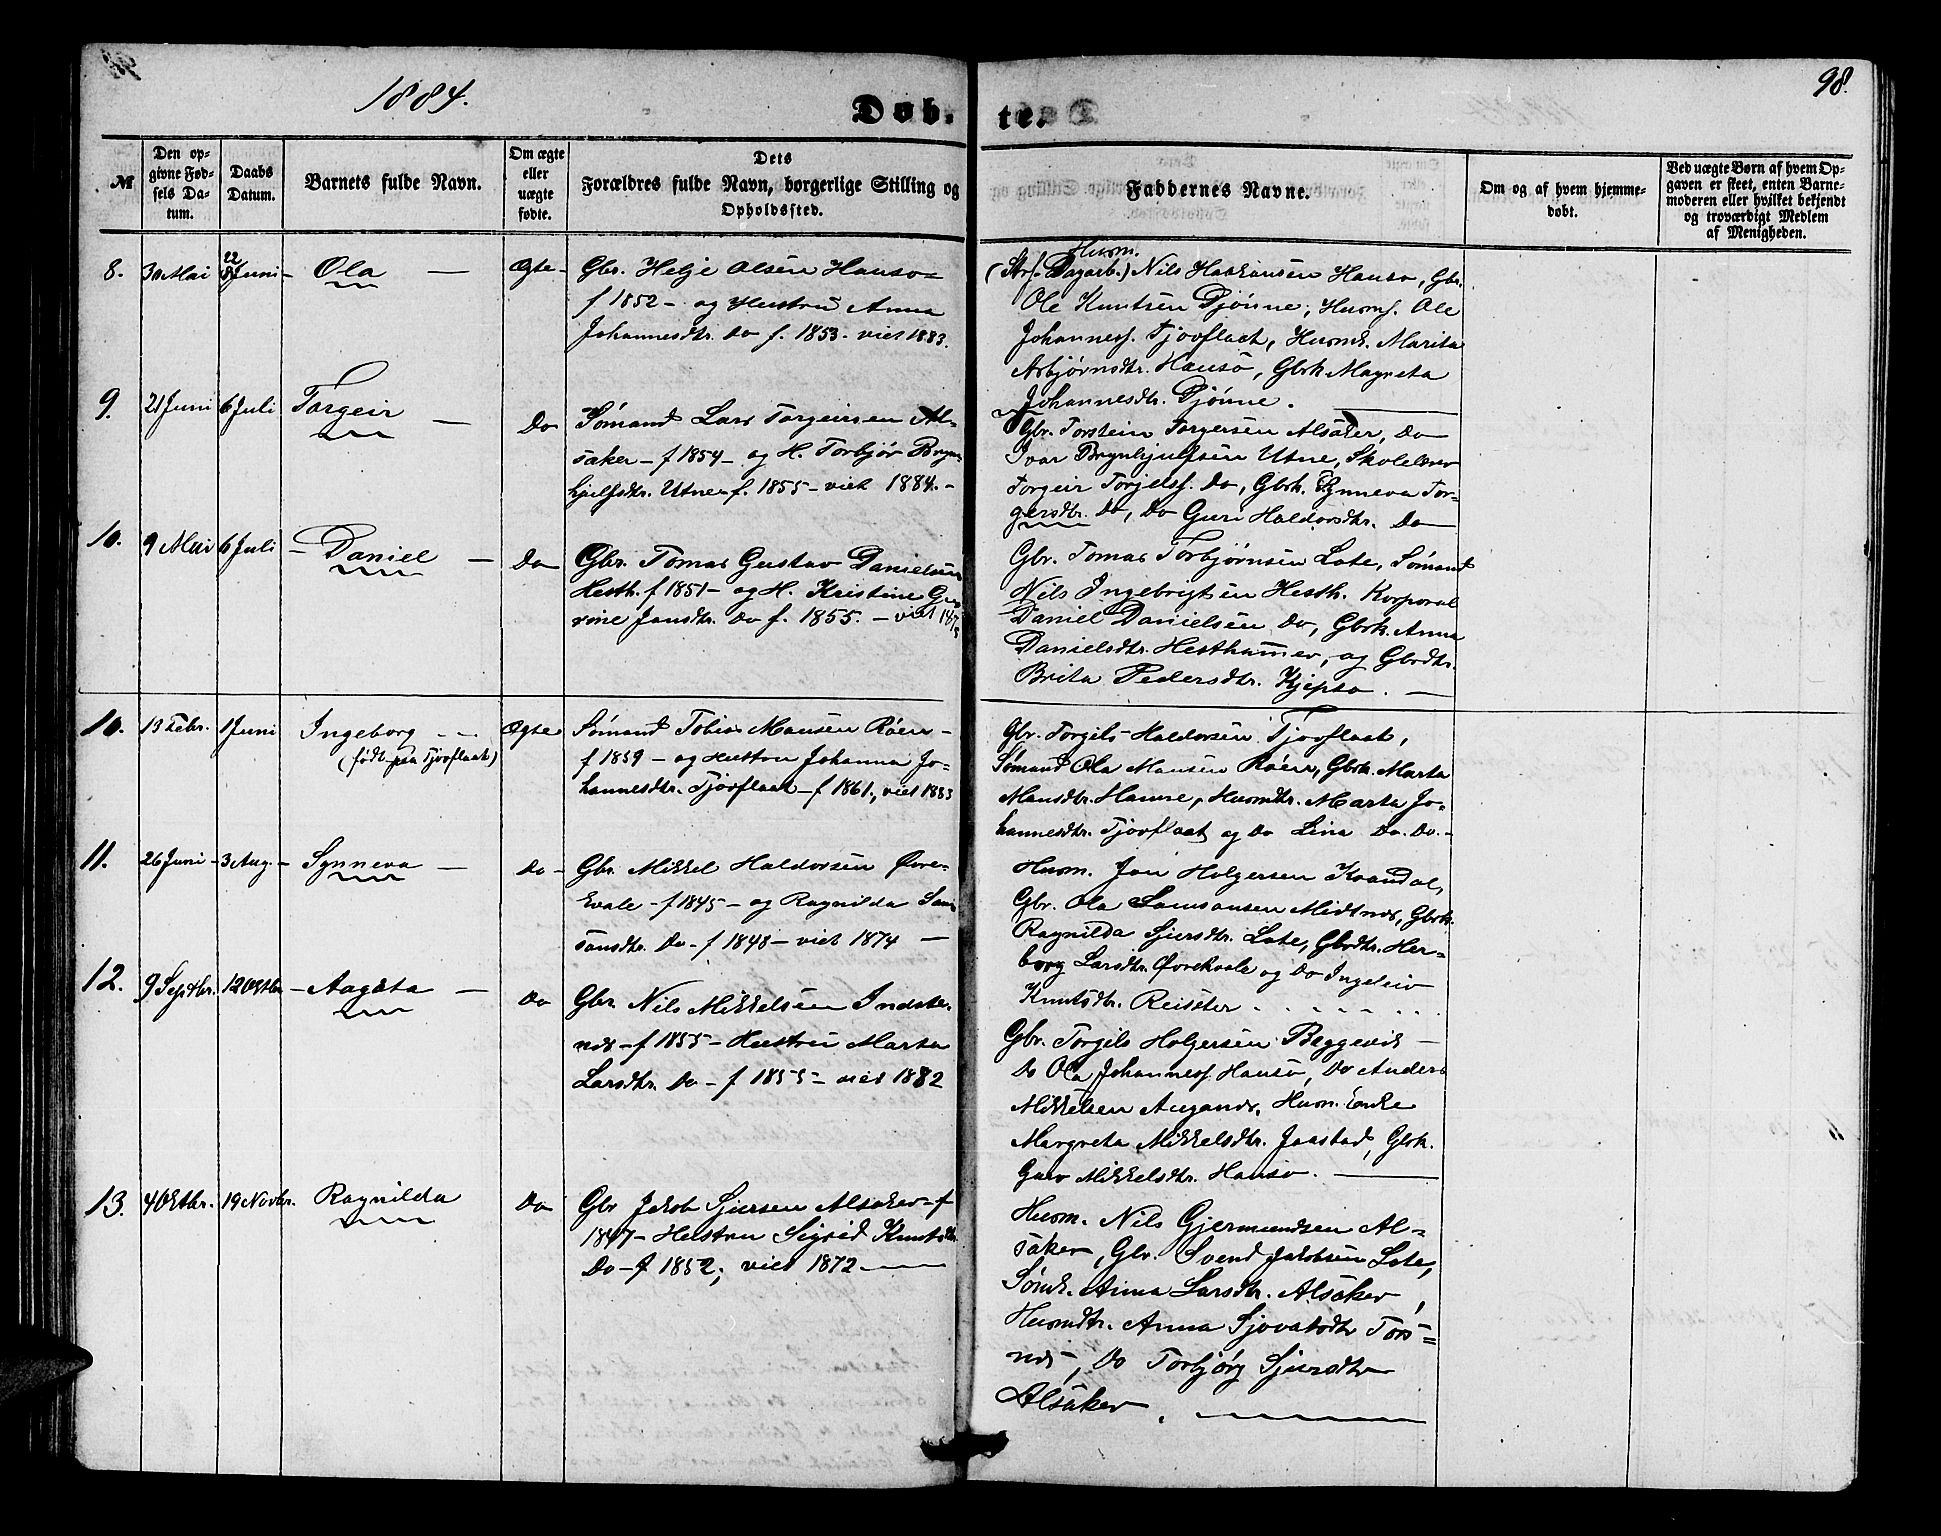 1884.
Døb-
te.
98.
№
Den op-
givne Fød-
sels Da-
tum.
Daabs
Datum.
Barnets fulde Navn.
Om ægte
eller
uægte
fødte.
Dets
Forældres fulde Navn, borgerlige Stilling og
Opholdssted.
Faddernes Navne.
Om og af hvem hjemme-
døbt.
Ved uægte Børn af hvem Op-
gaven er skeet, enten Barne-
moderen eller hvilket bekjendt
og troværdigt Medlem
af Menigheden.
8. 30 Mai 22 Juni - Ola - Ægte -
Gbr. Helje Olsen Hauso -
f 1852 - og Hustru Anna
Johannesdtr. Do f. 1853. viet 1883.
Husm.
Dagarb.) Nils Haakonsen Hauso, Gbr.
Ole Knutsen Djønne, Husmf. Ole
Johannesf. Tjovflaat, Husmk. Marita
Asbjørnsdtr. Hausö, Gbrk Magreta
Johannesdtr. Djønne.
9. 21 Juni 6 Juli Torgeir - Do
Sømand Lars Torgeirsen Al-
saker - f 1854 - og H. Torbjør Bryn-
hjulfsdtr. Utne - f. 1855 - viet 1884. -
Gbr. Torstein Torgersen Alsaker, Do
Ivar Brynhjulfsen Utne, Skolelærer
Torgeir Torjelsf. Do, Gbrk. Synneva Tor-
gersdtr. Do, Do Guri Haldorsdtr. Do
10. 9 Mai 6 Juli - Daniel - Do
Gbr. Tomas Gustav Danielsen
Hesth. f 1851 - og H. Kristine Gu-
rine Jansdtr. Do f. 1855. - viet 1878
Gbr. Tomas Torbjørnsen Lote, Sømand
Nils Ingebrigtsen Hesth. Korporal
Daniel Danielsen Do, Gbrk. Anna
Danielsdtr. Hesthammer, og Gbrdtr.
Brita Pedersdtr. Kjepso. -
10. 13 Febr. 1 Juni Ingeborg - - Ægte
(født paa Tjovflaat)
Sømand Tobias Mansen Röen -
f 1859 - og Hustru Johanna Jo-
hannesdtr. Tjovflaat - f 1861., viet 1883
Gbr. Torgils Haldorsen Tjovflaat,
Sømand Ola Mansen Röen, Gbrk. Marta
Mansdtr. Hamre, Husmdtr. Marta Jo-
hannesdtr. Tjovflaat og Do Lina Do. Do. -
11. 26 Juni - 3 Aug. - Synneva - Do -
Gbr. Mikkel Haldorsen Övre-
kvale - f 1845 - og Ragnilda Sam-
sonsdtr. Do - f 1848 - viet 1874 -
Husm. Jon Holgersen Kvandal,
Gbr. Ola Samsonsen Midtnes, Gbrk.
Ragnilda Sjursdtr. Lote, Gbrdtr. Her-
borg Larsdtr. Øvrekvale og Do Ingeleiv
Knutsdtr. Reisæter . . . . . .
12. 9 Septbr. 12 Oktbr. - Aagata - Do
Gbr. Nils Mikkelsen Indste-
nes - f 1855 - Hustru Marta
Larsdtr. Do - f 1855 - viet 1882
Gbr. Torgils Holgersen Beggevik -
Do Ola Johannesf. Hausö, Do Anders
Mikkelsen Augands, Husm. Enke
Margreta Mikkelsdtr. Jaastad, Gbrk.
Guro Mikkelsdtr. Hauso.
13. 4 Oktbr. 19 Novbr. Ragnilda Do
Gbr Jakob Sjursen Alsaker - f
1847 - Hustru Sigrid Knutsdtr.
Do - f 1852; viet 1872
Husm. Nils Gjermundsen Al-
saker, Gbr. Svend Jakobsen Lote,
Sömk. Anna Larsdtr. Alsaker,
Husmdtr. Anna Sjovatsdtr Tors-
nes, Do Torbjörg Sjursdtr
Alsaker.